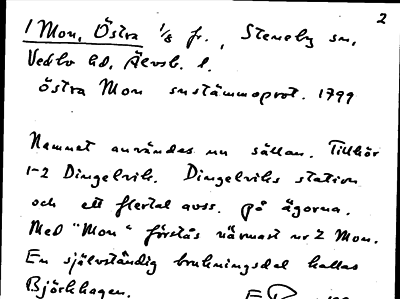 2
1 Mon, Östra 1/8 fr., Steneby sn,
Vedbo hd, Älvsb. l.
Östra Mon snstämmoprot. 1799
Namnet användes nu sällan. Tillhör
1-2 Dingelvik. Dingelviks station
och ett flertal avss. på ägorna.
Med "Mon" förstås närmast nr 2 Mon.
En självständig brukningsdel kallas
Björkhagen.